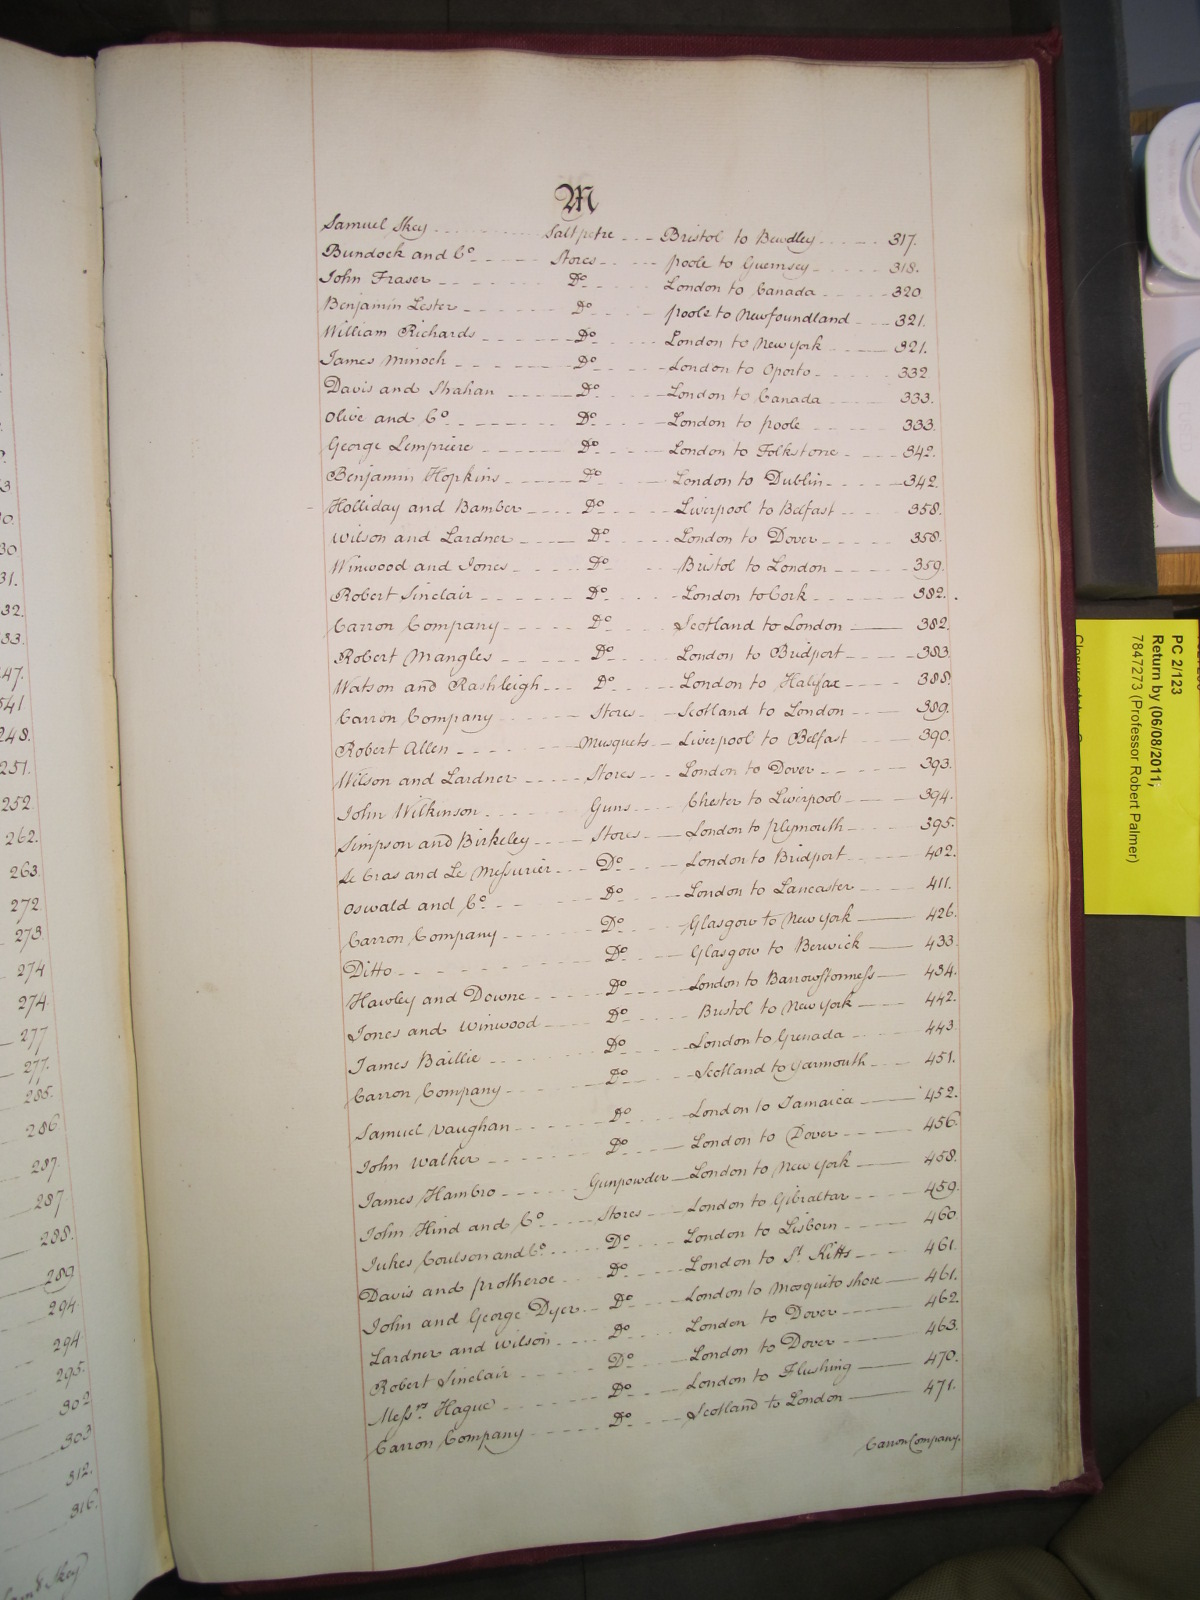 M
Samuel Skey Saltpetre Bristol to Bewdley 317.
Bundock and Co. Stores poole to Guernsey 318.
John Fraser Do. London to Canada 320
Benjamin Lester Do. poole to Newfoundland 321.
William Richards Do. London to New york 321.
James Minoch Do. London to Oporto 332
Davis and Strahan Do. London to Canada 333.
Olive and Co. Do. London to poole 333.
George Lempriere Do. London to Folkstone 342.
Benjamin Hopkins Do. London to Dublin 342.
Holliday and Bamber Do. Liverpool to Belfast 358.
Wilson and Lardner Do. London to Dover 358.
Winwood and Jones Do. Bristol to London 359.
Robert Sinclair Do. London to Cork 382.
Carron Company Do. Scotland to London 382.
Robert Mangles Do. London to Bridport 383.
Watson and Rashleigh Do. London to Halifax 388.
Carron Company Stores Scotland to London 389.
Robert Allen Musquets Liverpool to Belfast 390.
Wilson and Lardner Stores London to Dover 393.
John Wilkinson Guns Chester to Liverpool 394.
Simpson and Birkeley Stores London to plymouth 395.
Le Gras and Le Messurier Do. London to Bridport 402.
Oswald and Co. Do. London to Lancaster 411.
Carron Company Do. Glasgow to New york 426.
Ditto Do. Glasgow to Berwick 433
Hawley and Downe Do. London to Barrowstonness 434.
Jones and Winwood Do. Bristol to New york 442.
James Baillie Do. London to Grenada 443
Carron Company Do. Scotland to yarmouth 451.
Samuel Vaughan Do. London to Jamaica 452.
John Walker Do. London to Dover 456.
James Hambro Gunpowder London to New york 458.
John Hind and Co. Stores London to Gibraltar 459.
Jukes Coulson and Co. Do. London to Lisborn 460.
Davis and protheroe Do. London to St. Kitts 461.
John and George Dyer Do. London to Mosquito shore 461.
Lardner and Wilson Do. London to Dover 462.
Robert Sinclair Do. London to Dover 463.
Messrs. Hague Do. London to Flushing 470.
Carron Company Do. Scotland to London 471.
Carron Company.
247.
341
248.
251.
252
262.
263.
272
273.
274
274.
277
277.
285.
286
287.
287
288.
289
294.
294
295.
302
303
312.
316.
Saml. Skey
PC 2/123
Return by (06/08/2011;
7847273 (Professor Robert Palmer)